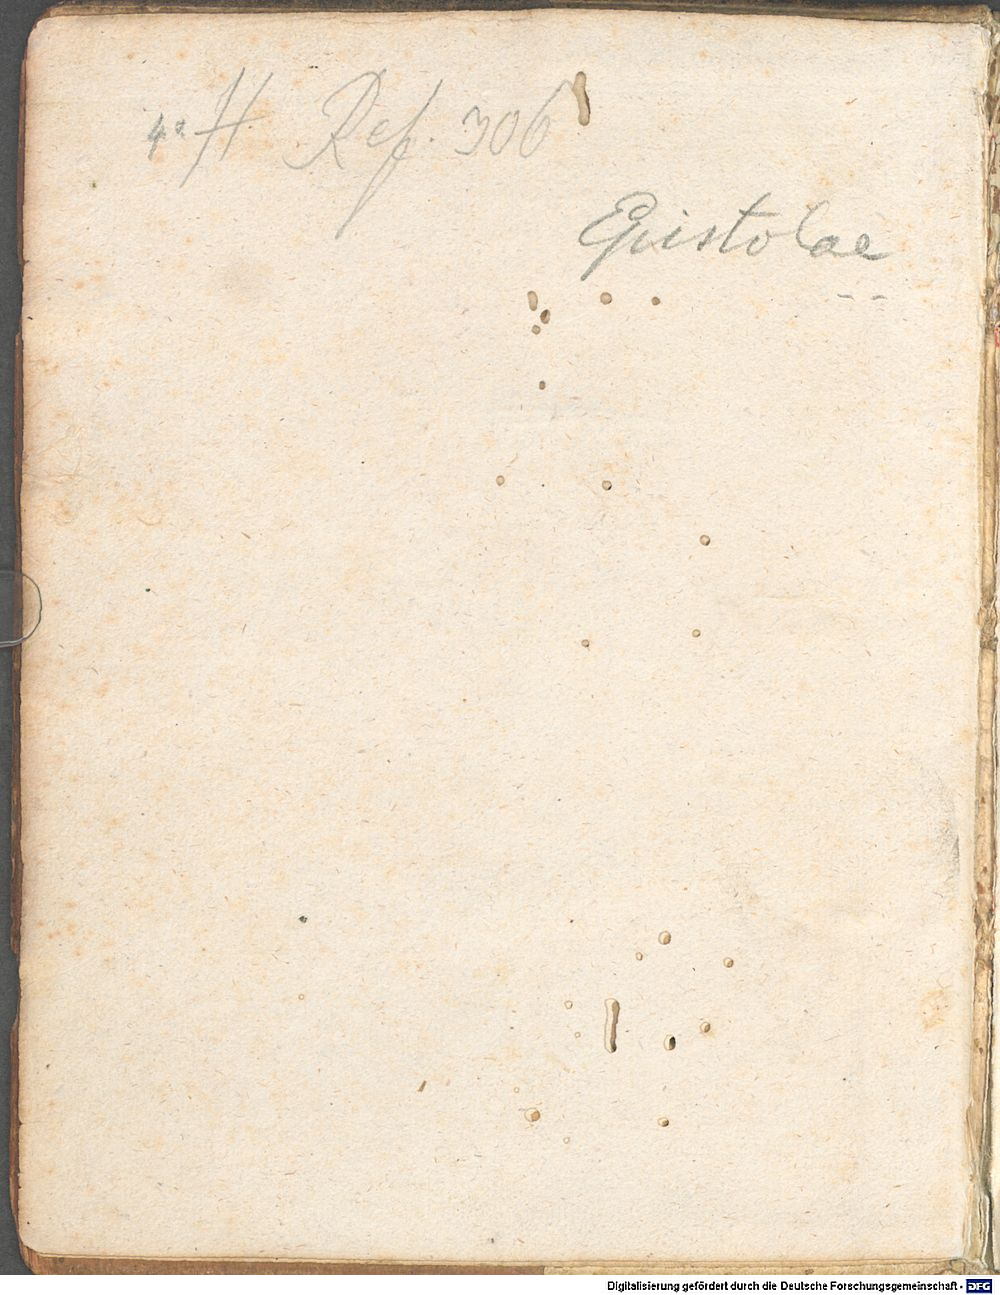 4° H Ref. 306
Epistolae
Digitalisierung gefördert durch die Deutsche Forschungsgemeinschaft - DFG